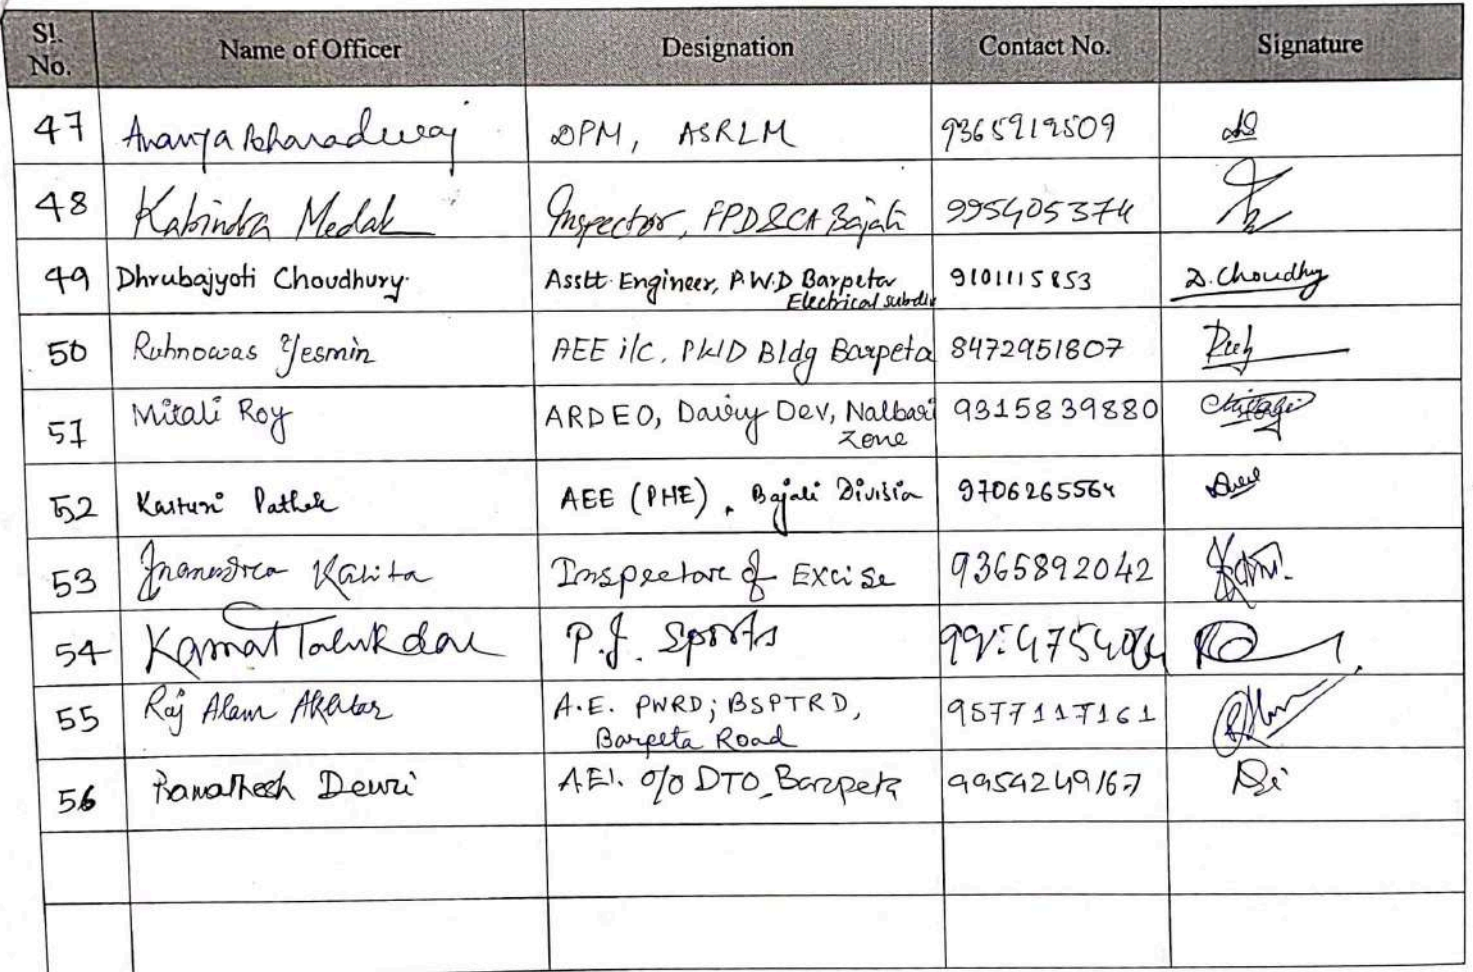 Sl. No. Name of Officer Designation Contact No. Signature
47 Ananya Bharadwaj DPM, ASRLM 9365919509
48 Kabindra Medak Inspector, FPD&CA Bajali 995405374
49 Dhrubajyoti Choudhury. Asstt. Engineer, P.W.D Barpeta 9101115853 D. Choudhy
Electrical subdiv
50 Ruhnowas Yesmin AEE i/c, PWD Bldg Barpeta 8472951807
51 Mitali Roy ARDEO, Dairy Dev, Nalbari 9315839880
Zone
52 Kasturi Pathak AEE (PHE), Bajali Division 9706265564
53 Jnanendra Kalita Inspector of Excise 9365892042
54 Kamal Talukdar P.J. Sports
55 Raj Alam Akhtar A.E. PWRD; BSPTRD, 9577117161
Barpeta Road
56 Dewri A.E. o/o DTO, Barpeta 9954249167